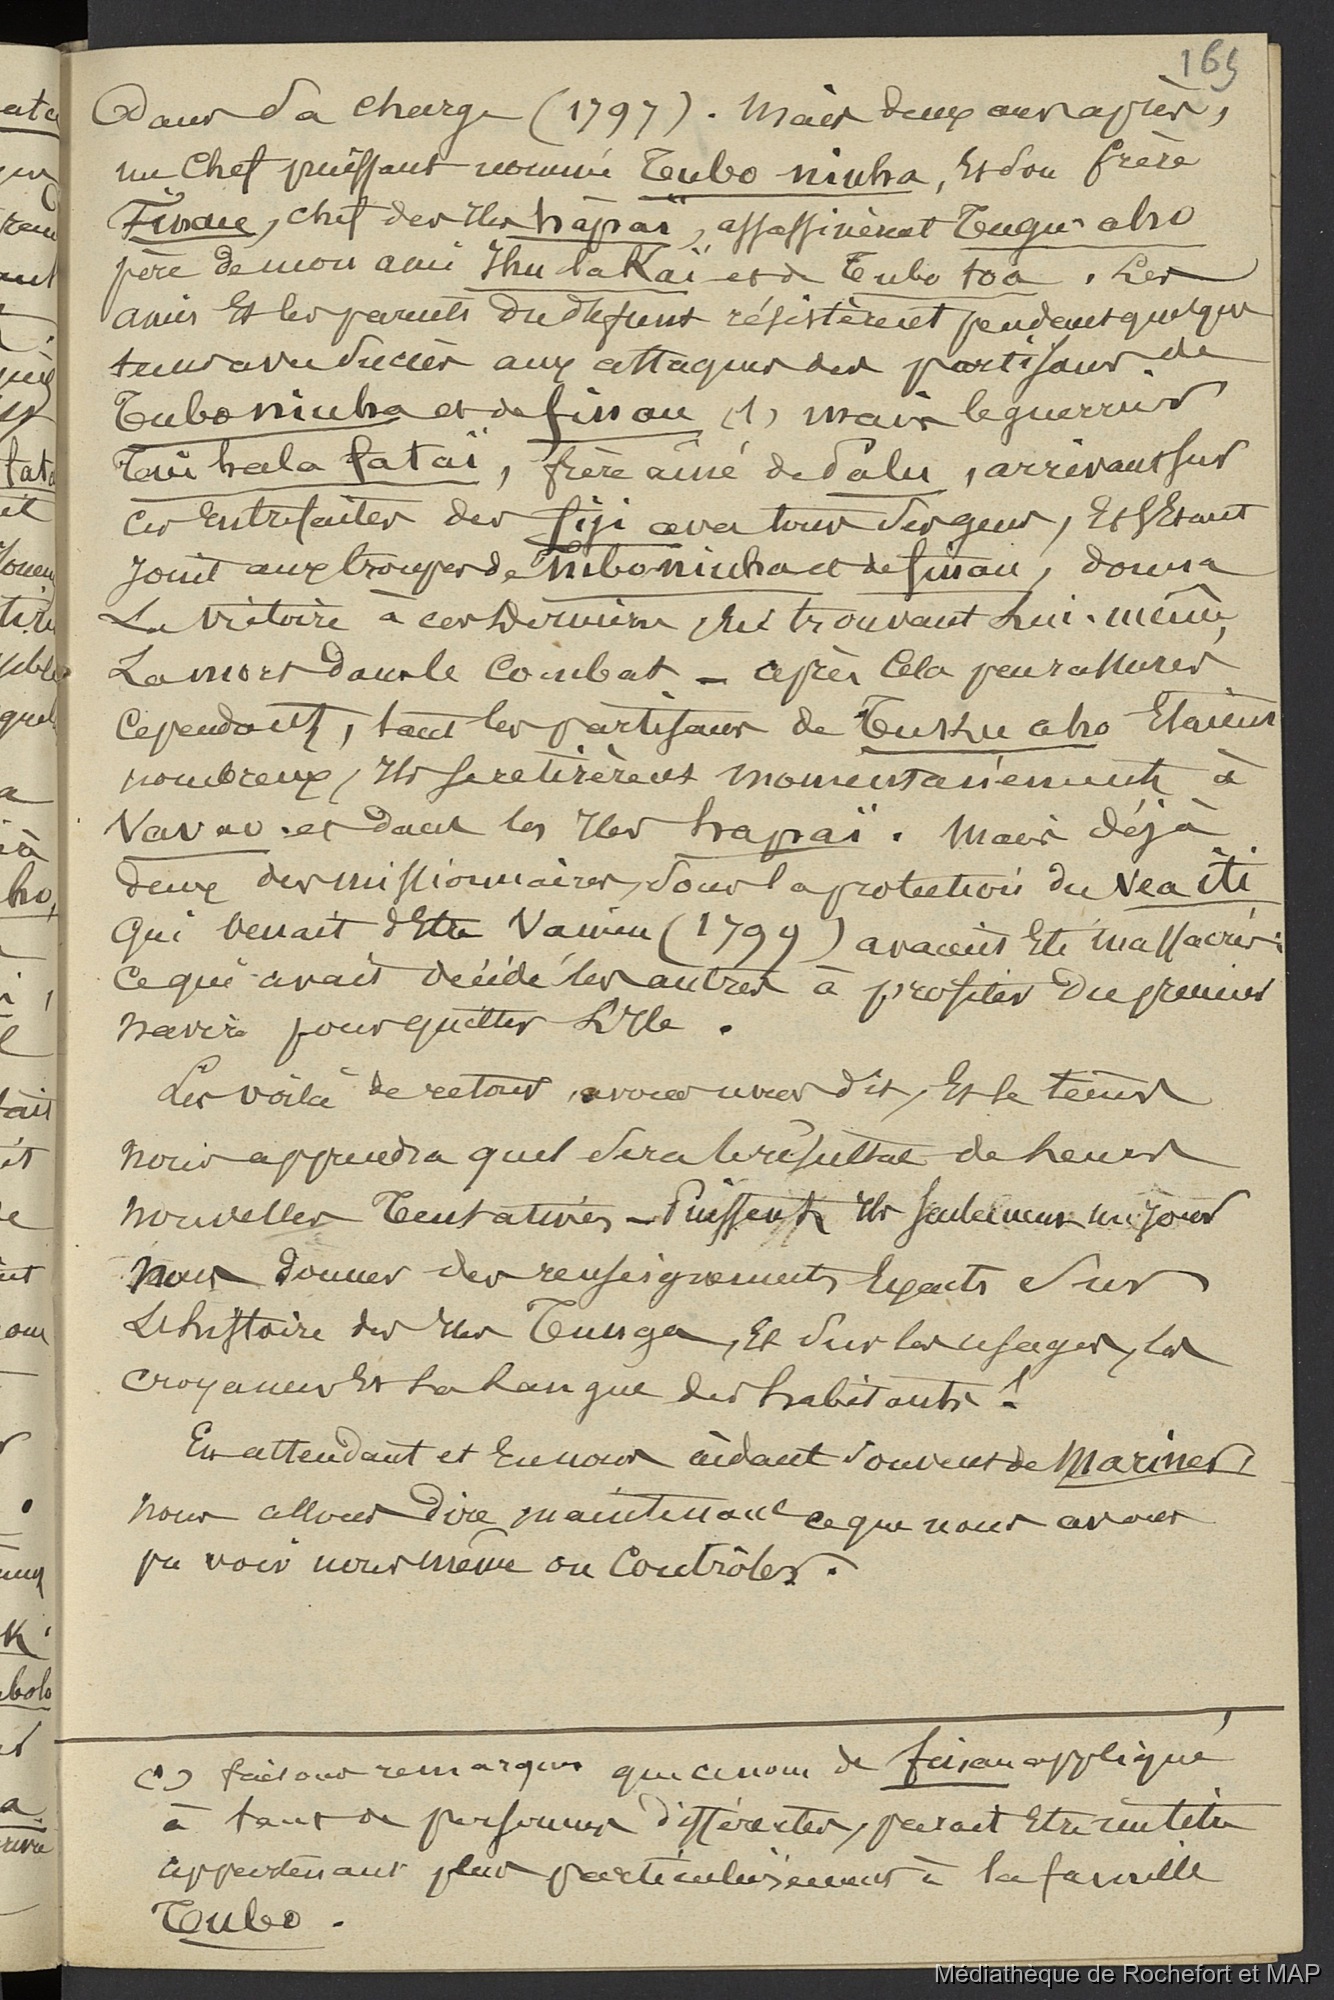 165
Dans sa charge (1797). Mais deux ans après,
un chef puissant nommé Tubo niuha, Et son frère
Finau, chef des Iles hapaï, assassinèrent Tugu aho
père de mon ami Ihu laKaï et de Tubo toa. Les
amis Et les parents du défunt résistèrent pendant quelque
tems avec succès aux attaques des partisans de
Tubo niuha et de finau (1) mais le guerrier
Tui hala fataï, frère aîné de Palu, arrivant sur
ces Entrefaites des fiji avec tous ses gens, Et s'Etant
joint aux troupes de Tubo niuha et de finau, donna
La victoire à ces derniers, En trouvant Lui-même
La mort dans le Combat - après Cela peu rassurés
Cependant, tant les partisans de Tuku aho Etaient
nombreux, Ils se retirèrent momentanément à
Vavao et dans les Iles hapaï. Mais déjà
deux des missionnaires, sous la protection du Vea iti
Qui venait d'Etre Vaincu (1799) avaient Eté massacrés:
Ce qui avait décidé les autres à profiter Du premier
navire pour quitter L'Ile.
Les voilà de retour, avons nous dit, Et le tems
nous apprendra quel sera le résultat de Leurs
nouvelles Tentatives - Puissent Ils seulement un jour
nous donner des renseignements Exacts sur
L'histoire des Iles Tunga, Et sur les usages, les
croyances Et La Langue des habitants!
En attendant et En nous aidant souvent de Mariner,
nous allons Dire maintenant ce que nous avons
pu voir nous même ou Contrôler.
(1) faisons remarquer que ce nom de finau appliqué
à tant de personnes différentes, parait Etre un titre
appartenant plus particulièrement à la famille
Tubo.
Médiathèque de Rochefort et MAP